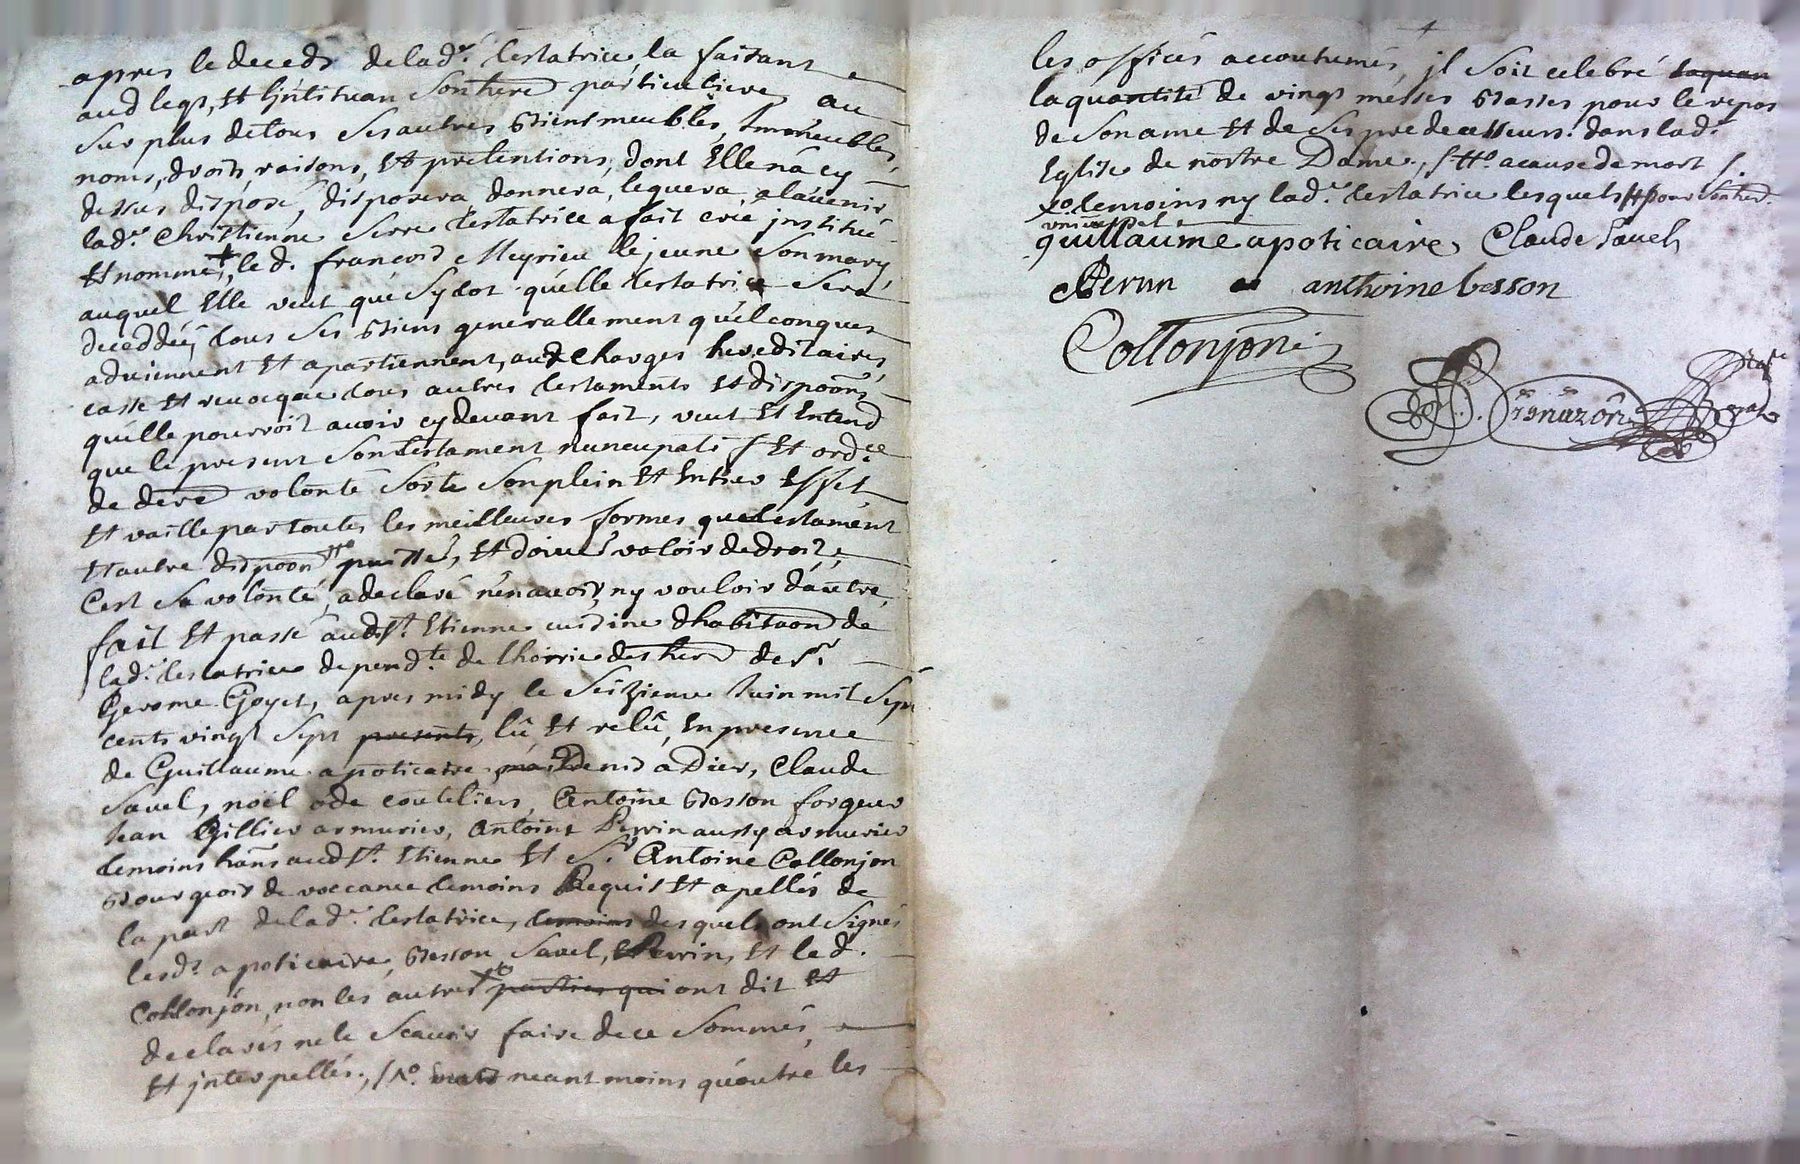 apres le deceds de lad.e testatrice, la faisant
aud legs, et l'instituan son here particuliere, au
sur plus de tous ses autres biens meubles, immeubles,
noms, droits, raisons, et pretentions, dont elle n'a cy
dessus disposé, disposera, donnera, leguera, a lavenir
lad.e Christienne Serre testatrice a fait cree institué
et nommé + le d. françois Meyrieu le jeune son mary
auquel elle veut que sytot quelle testatrice sera
deceddée, tous ses biens generallement quelconques
adviennent et apartiennent, aux charges hereditaires,
casse et revocque tous autres testaments et dispoõns
quelle pourroit avoir cy devant fait, veut et entend
que le present son testament nuncupatif et ord.ce
de dere volonté sorte son plein et entier effet
et vaille par toutes les meilleures formes que testament
et autre dispoon puisse, et doive valoir de droit,
Cest sa volonté, a declaré n'en avoir, ny vouloir dautre,
fait et passé aud st. Etienne cuisine dhabitaon de
lad.e testatrice depend.te de l'hoirie des here de Sr.
Gerome Goyet, apres midy le seizieme juin mil sept
cents vingt sept presents, lû et relû, en presence
de Guillaume apoticaire, Denis a Dier, Claude
Savel, noel ode couteliers, Antoine Besson forgeur
Jean Gillier armurier, Antoine Perrin aussy armurier
temoins hans aud st. Etienne et Sr. Antoine Collonjon
bourgeois de voccance temoins Requis et apellés de
la part de lad.e testatrice, temoins desquels ont signés
lesd.s apoticaire, Besson, Savel, et Perrin, et led.
Collonjon, non les autres parties qui ont dit et
declarés ne le scavoir faire de ce sommés,
et interpellés, neant moins qu'outre les
les offices accoutumés, jl soit celebré laquan
la quantité de vingt messes basses pour le repos
de son ame et de ses predecesseurs, dans lad.e
Eglise de nostre Dame, a cause de mort
temoins ny lad.e testatrice lesquels pour son here
universel
guillaume apoticaire, Claude Savel
Perrin anthoine besson
Collonjon